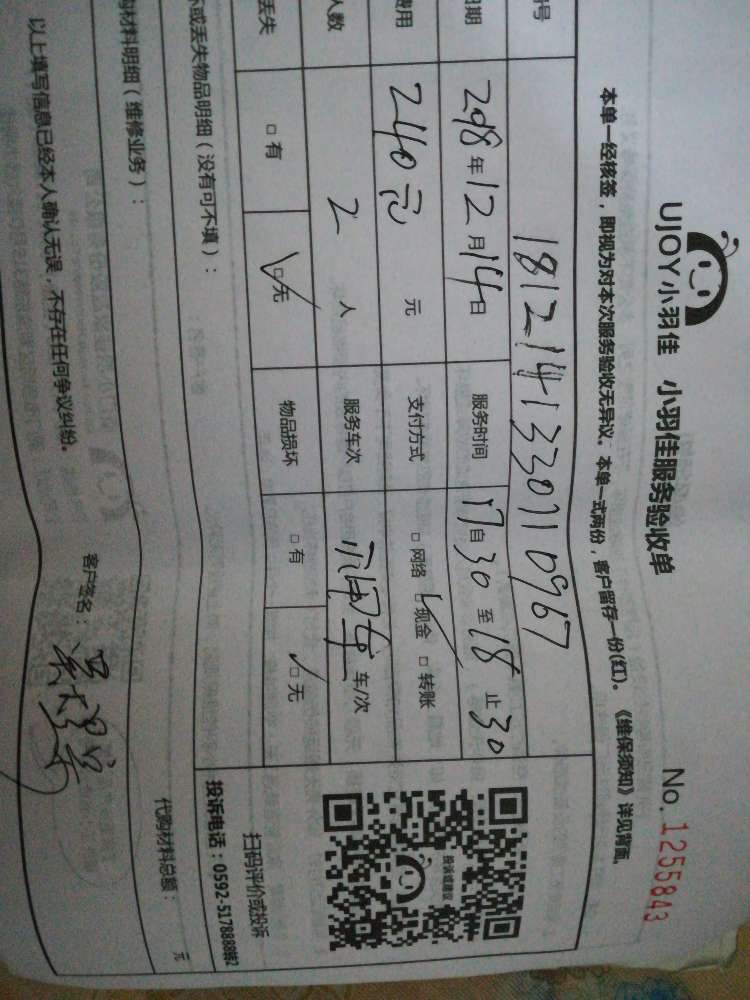 UJOY小羽佳 小羽佳服务验收单
No.1255843
本单一经核签，即视为对本次服务验收无异议。本单一式两份，客户留存一份(红)。《维保须知》详见背面。
号 181214133071 0967
日期 2018年12月14日 服务时间 17自30至18止30
费用 240元 元 支付方式 □网络 ☑现金 □转账
人数 2 人 服务车次 不用车 车/次
丢失 □有 ☑无 物品损坏 □有 ☑无
坏或丢失物品明细（没有可不填）：
投诉或建议
扫码评价或投诉
投诉电话：0592-5178888转2
购材料明细（维修业务）：
代购材料总额： 元
以上填写信息已经本人确认无误，不存在任何争议纠纷。 客户签名：